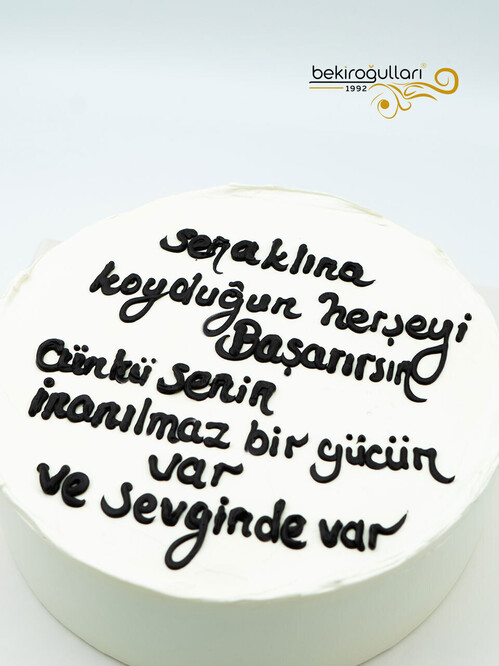 bekiroğulları®
1992
sen aklına
koyduğun herşeyi
Başarırsın
Çünkü senin
inanılmaz bir gücün
var
ve sevginde var